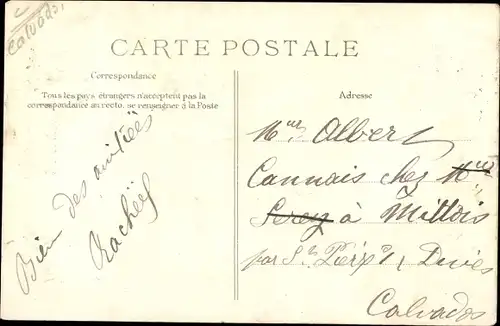 Calvados
CARTE POSTALE
Correspondance
Tous les pays étrangers n'acceptent pas la
correspondance au recto. se renseigner à la Poste
Bien des amitiés
Rachel
Adresse
Albert
Cannais chez
à
par St Pierre s/ Dives
Calvados